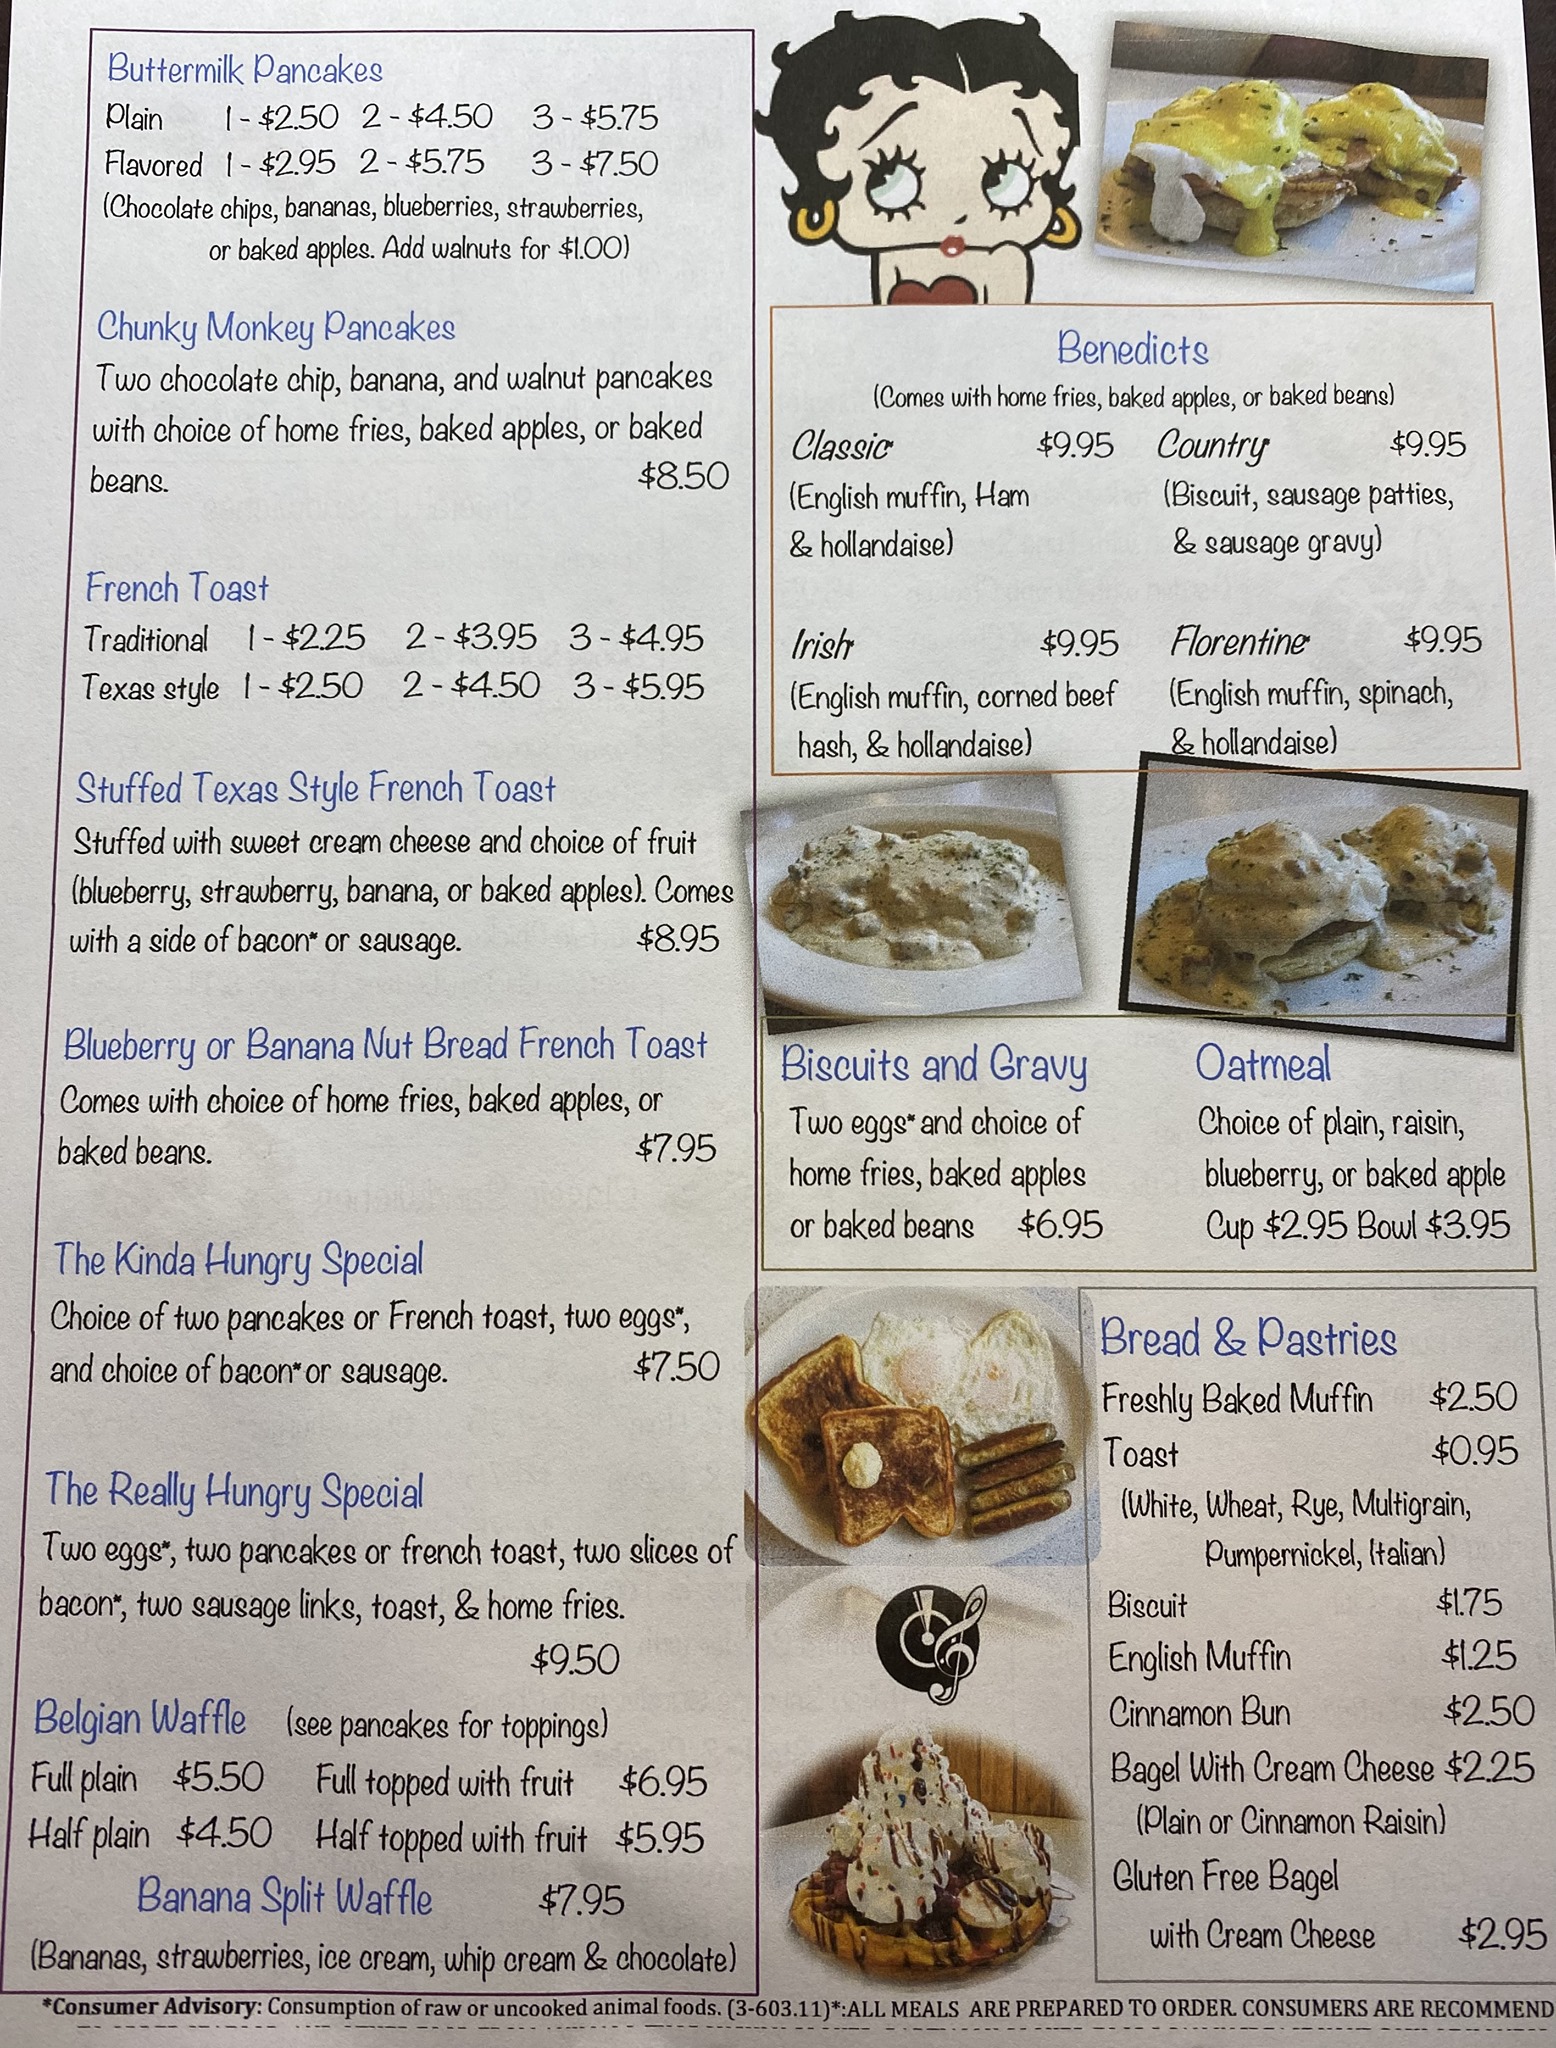 Buttermilk Pancakes
Plain 1 - $2.50 2 - $4.50 3 - $5.75
Flavored 1 - $2.95 2 - $5.75 3 - $7.50
(Chocolate chips, bananas, blueberries, strawberries,
or baked apples. Add walnuts for $1.00)
Chunky Monkey Pancakes
Two chocolate chip, banana, and walnut pancakes
with choice of home fries, baked apples, or baked
beans. $8.50
French Toast
Traditional 1 - $2.25 2 - $3.95 3 - $4.95
Texas style 1 - $2.50 2 - $4.50 3 - $5.95
Stuffed Texas Style French Toast
Stuffed with sweet cream cheese and choice of fruit
(blueberry, strawberry, banana, or baked apples). Comes
with a side of bacon* or sausage. $8.95
Blueberry or Banana Nut Bread French Toast
Comes with choice of home fries, baked apples, or
baked beans. $7.95
The Kinda Hungry Special
Choice of two pancakes or French toast, two eggs*,
and choice of bacon* or sausage. $7.50
The Really Hungry Special
Two eggs*, two pancakes or french toast, two slices of
bacon*, two sausage links, toast, & home fries.
$9.50
Belgian Waffle (see pancakes for toppings)
Full plain $5.50 Full topped with fruit $6.95
Half plain $4.50 Half topped with fruit $5.95
Banana Split Waffle $7.95
(Bananas, strawberries, ice cream, whip cream & chocolate)
Benedicts
(Comes with home fries, baked apples, or baked beans)
Classic* $9.95 Country* $9.95
(English muffin, Ham (Biscuit, sausage patties,
& hollandaise) & sausage gravy)
Irish* $9.95 Florentine* $9.95
(English muffin, corned beef (English muffin, spinach,
hash, & hollandaise) & hollandaise)
Biscuits and Gravy
Two eggs* and choice of
home fries, baked apples
or baked beans $6.95
Oatmeal
Choice of plain, raisin,
blueberry, or baked apple
Cup $2.95 Bowl $3.95
Bread & Pastries
Freshly Baked Muffin $2.50
Toast $0.95
(White, Wheat, Rye, Multigrain,
Pumpernickel, Italian)
Biscuit $1.75
English Muffin $1.25
Cinnamon Bun $2.50
Bagel With Cream Cheese $2.25
(Plain or Cinnamon Raisin)
Gluten Free Bagel
with Cream Cheese $2.95
*Consumer Advisory: Consumption of raw or uncooked animal foods. (3-603.11)*:ALL MEALS ARE PREPARED TO ORDER. CONSUMERS ARE RECOMMEND